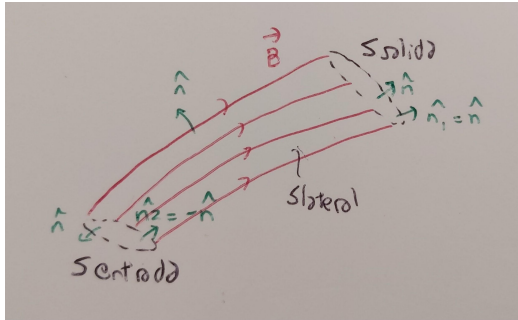 B⃗
S salida
n̂
n̂
n̂₁ = n̂
S lateral
n̂
n̂2 = -n̂
S entrada